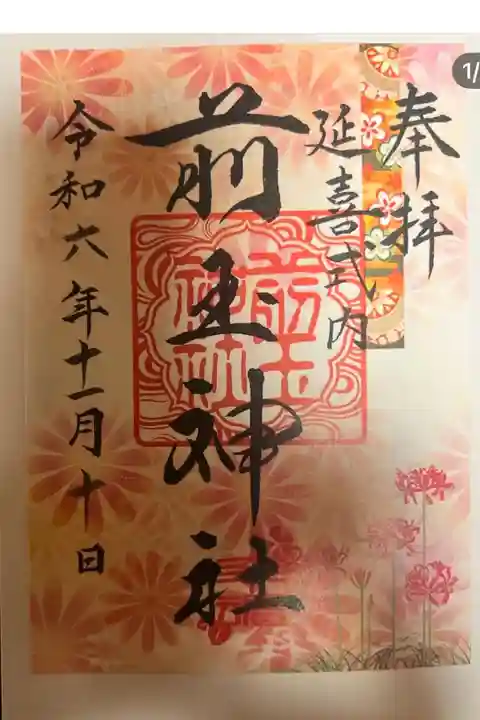 奉拝
延喜式内
前玉神社
前玉
神社
令和六年十一月十日
1/